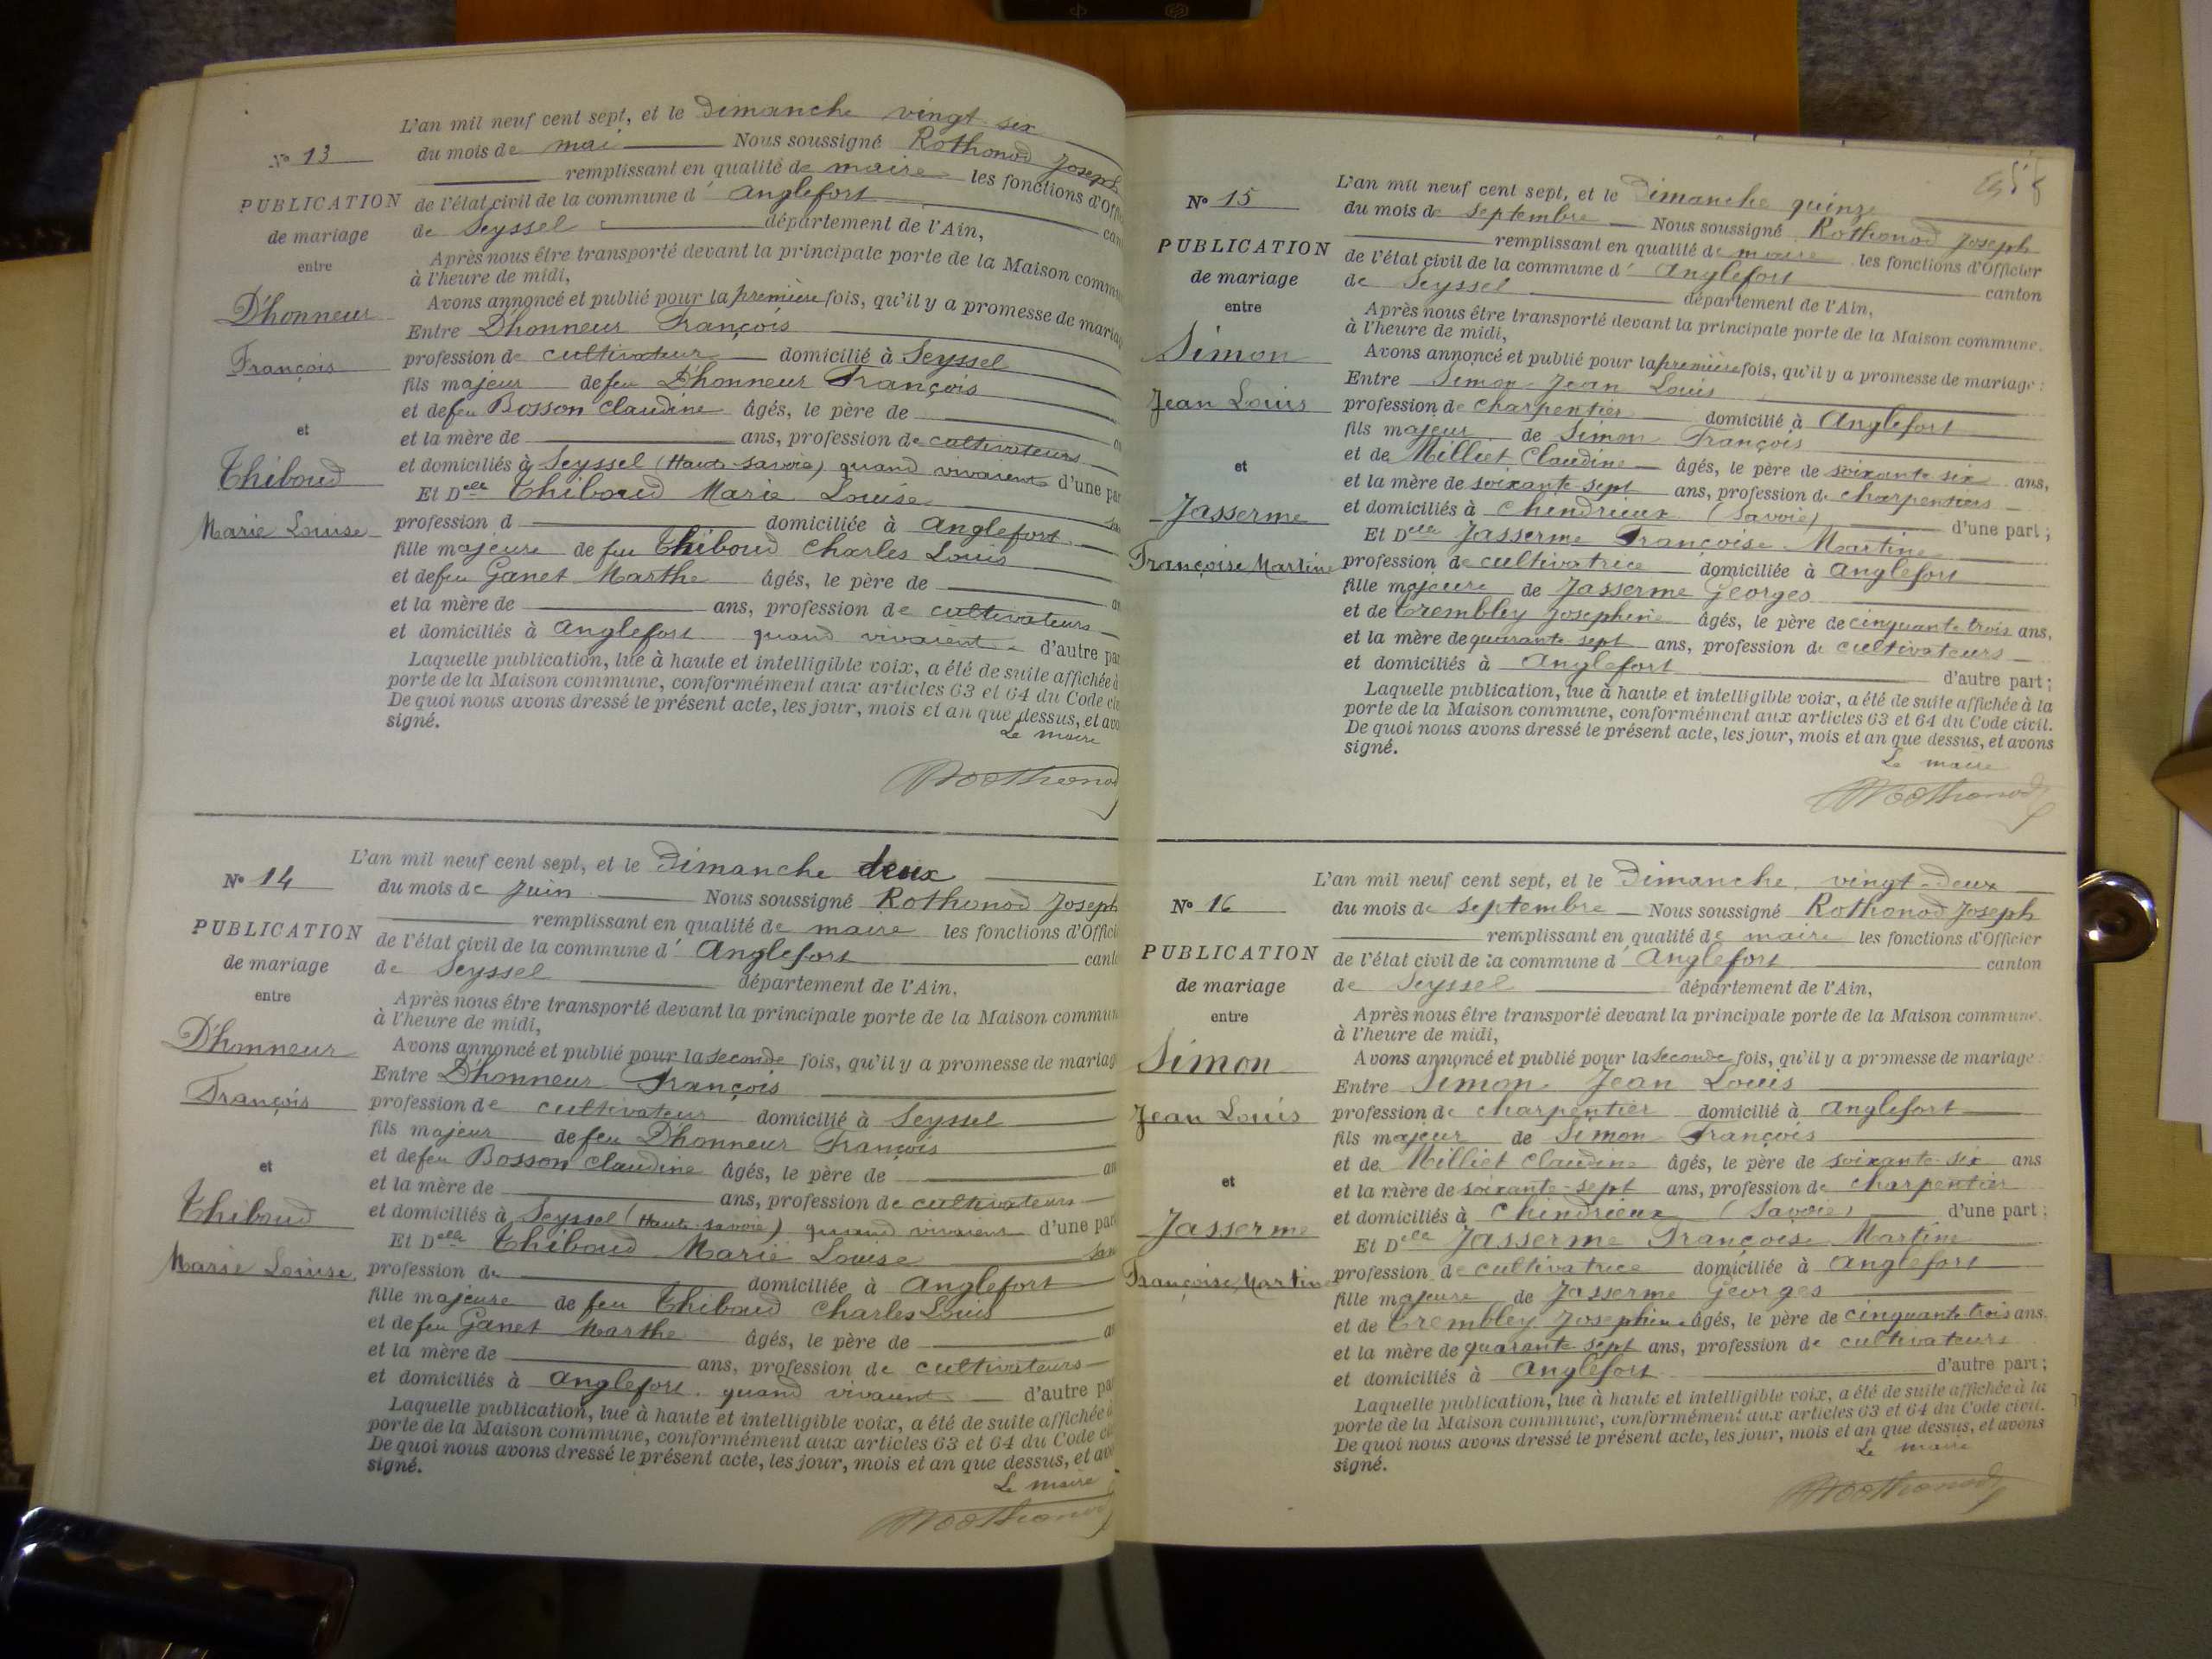 N° 13
PUBLICATION
de mariage
entre
D'honneur
François
et
Thiboud
Marie Louise
L'an mil neuf cent sept, et le Dimanche vingt-six
du mois de mai Nous soussigné Rothonod Joseph
remplissant en qualité de maire les fonctions d'Offi
de l'état civil de la commune d' Anglefort can
de Seyssel département de l'Ain,
Après nous être transporté devant la principale porte de la Maison commu
à l'heure de midi,
Avons annoncé et publié pour la première fois, qu'il y a promesse de maria
Entre D'honneur François
profession de cultivateur domicilié à Seyssel
fils majeur de feu D'honneur François
et de feu Bosson Claudine âgés, le père de
et la mère de ans, profession de cultivateurs
et domiciliés à Seyssel (Haute-Savoie) quand vivaient d'une par
Et Delle Thiboud Marie Louise
profession d domiciliée à Anglefort
fille majeure de feu Thiboud Charles Louis
et de feu Ganet Marthe âgés, le père de
et la mère de ans, profession de cultivateurs
et domiciliés à Anglefort quand vivaient d'autre par
Laquelle publication, lue à haute et intelligible voix, a été de suite affichée à
porte de la Maison commune, conformément aux articles 63 et 64 du Code ci
De quoi nous avons dressé le présent acte, les jour, mois et an que dessus, et avo
signé.
Le maire
Rothonod
N° 14
PUBLICATION
de mariage
entre
D'honneur
François
et
Thiboud
Marie Louise
L'an mil neuf cent sept, et le Dimanche deux
du mois de Juin Nous soussigné Rothonod Joseph
remplissant en qualité de maire les fonctions d'Offici
de l'état civil de la commune d' Anglefort canto
de Seyssel département de l'Ain,
Après nous être transporté devant la principale porte de la Maison commun
à l'heure de midi,
Avons annoncé et publié pour la seconde fois, qu'il y a promesse de mariag
Entre D'honneur François
profession de cultivateur domicilié à Seyssel
fils majeur de feu D'honneur François
et de feu Bosson Claudine âgés, le père de an
et la mère de ans, profession de cultivateurs
et domiciliés à Seyssel (Haute-Savoie) quand vivaient d'une part
Et Delle Thiboud Marie Louise san
profession de domiciliée à Anglefort
fille majeure de feu Thiboud Charles Louis
et de feu Ganet Marthe âgés, le père de an
et la mère de ans, profession de cultivateurs
et domiciliés à Anglefort quand vivaient d'autre pa
Laquelle publication, lue à haute et intelligible voix, a été de suite affichée à
porte de la Maison commune, conformément aux articles 63 et 64 du Code ci
De quoi nous avons dressé le présent acte, les jour, mois et an que dessus, et avo
signé.
Le maire
Rothonod
N° 15
PUBLICATION
de mariage
entre
Simon
Jean Louis
et
Jasserme
Françoise Martine
L'an mil neuf cent sept, et le Dimanche quinze
du mois de Septembre Nous soussigné Rothonod Joseph
remplissant en qualité de maire les fonctions d'Officier
de l'état civil de la commune d' Anglefort canton
de Seyssel département de l'Ain,
Après nous être transporté devant la principale porte de la Maison commune.
à l'heure de midi,
Avons annoncé et publié pour la première fois, qu'il y a promesse de mariage :
Entre Simon Jean Louis
profession de charpentier domicilié à Anglefort
fils majeur de Simon François
et de Milliet Claudine âgés, le père de soixante-six ans,
et la mère de soixante-sept ans, profession de charpentiers
et domiciliés à Chindrieux (Savoie) d'une part ;
Et Delle Jasserme Françoise Martine
profession de cultivatrice domiciliée à Anglefort
fille majeure de Jasserme Georges
et de Trembley Josephine âgés, le père de cinquante-trois ans,
et la mère de quarante-sept ans, profession de cultivateurs
et domiciliés à Anglefort d'autre part ;
Laquelle publication, lue à haute et intelligible voix, a été de suite affichée à la
porte de la Maison commune, conformément aux articles 63 et 64 du Code civil.
De quoi nous avons dressé le présent acte, les jour, mois et an que dessus, et avons
signé.
Le maire
Rothonod
N° 16
PUBLICATION
de mariage
entre
Simon
Jean Louis
et
Jasserme
Françoise Martine
L'an mil neuf cent sept, et le Dimanche vingt-deux
du mois de Septembre Nous soussigné Rothonod Joseph
remplissant en qualité de maire les fonctions d'Officier
de l'état civil de la commune d' Anglefort canton
de Seyssel département de l'Ain,
Après nous être transporté devant la principale porte de la Maison commune.
à l'heure de midi,
Avons annoncé et publié pour la seconde fois, qu'il y a promesse de mariage :
Entre Simon Jean Louis
profession de charpentier domicilié à Anglefort
fils majeur de Simon François
et de Milliet Claudine âgés, le père de soixante-six ans
et la mère de soixante-sept ans, profession de charpentier
et domiciliés à Chindrieux (Savoie) d'une part ;
Et Delle Jasserme Françoise Martine
profession de cultivatrice domiciliée à Anglefort
fille majeure de Jasserme Georges
et de Trembley Josephine âgés, le père de cinquante-trois ans.
et la mère de quarante-sept ans, profession de cultivateurs
et domiciliés à Anglefort d'autre part ;
Laquelle publication, lue à haute et intelligible voix, a été de suite affichée à la
porte de la Maison commune, conformément aux articles 63 et 64 du Code civil.
De quoi nous avons dressé le présent acte, les jour, mois et an que dessus, et avons
signé.
Le maire
Rothonod